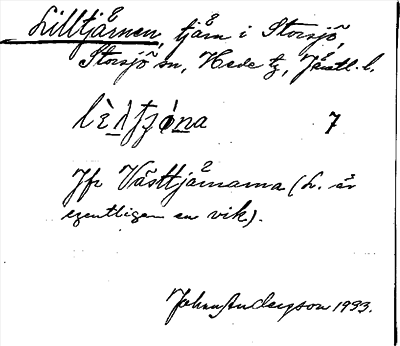 Lilltjårnen, tjårn i Storsjö,
Storsjö sn, Hede tg, Jämtl. l.
7
Jfr Västtjårnarna (L. är
egentligen en vik).
Johan Anderson 1933.